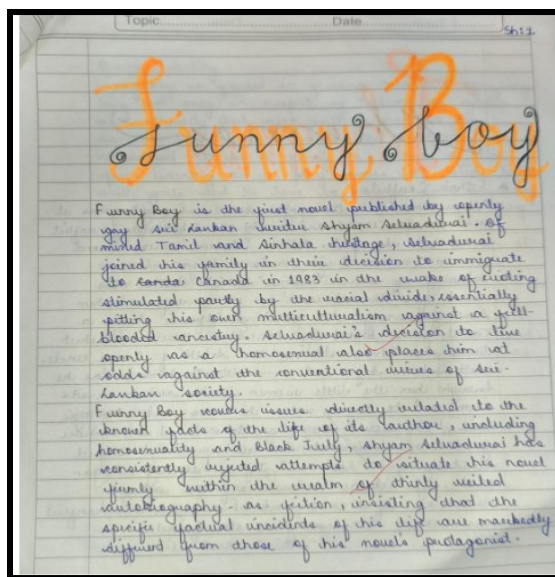 Topic.......... Date..........
Sh:1
Funny Boy
Funny Boy is the first novel published by openly
gay Sri Lankan writer Shyam Selvadurai. Of
mixed Tamil and Sinhala heritage, Selvadurai
joined his family in their decision to immigrate
to Canada in 1983 in the wake of rioting
stimulated partly by the racial divide, essentially
pitting his own multiculturalism against a full-
blooded ancestry. Selvadurai's decision to live
openly as a homosexual also places him at
odds against the conventional of Sri-
Lankan society.
Funny Boy covers issues directly related to the
known facts of the life of its author, including
homosexuality and Black July, Shyam Selvadurai has
consistently rejected attempts to situate his novel
firmly within the realm of thinly veiled
autobiography. as fiction, insisting that the
specific factual incidents of his life are markedly
different from those of his novel's protagonist.